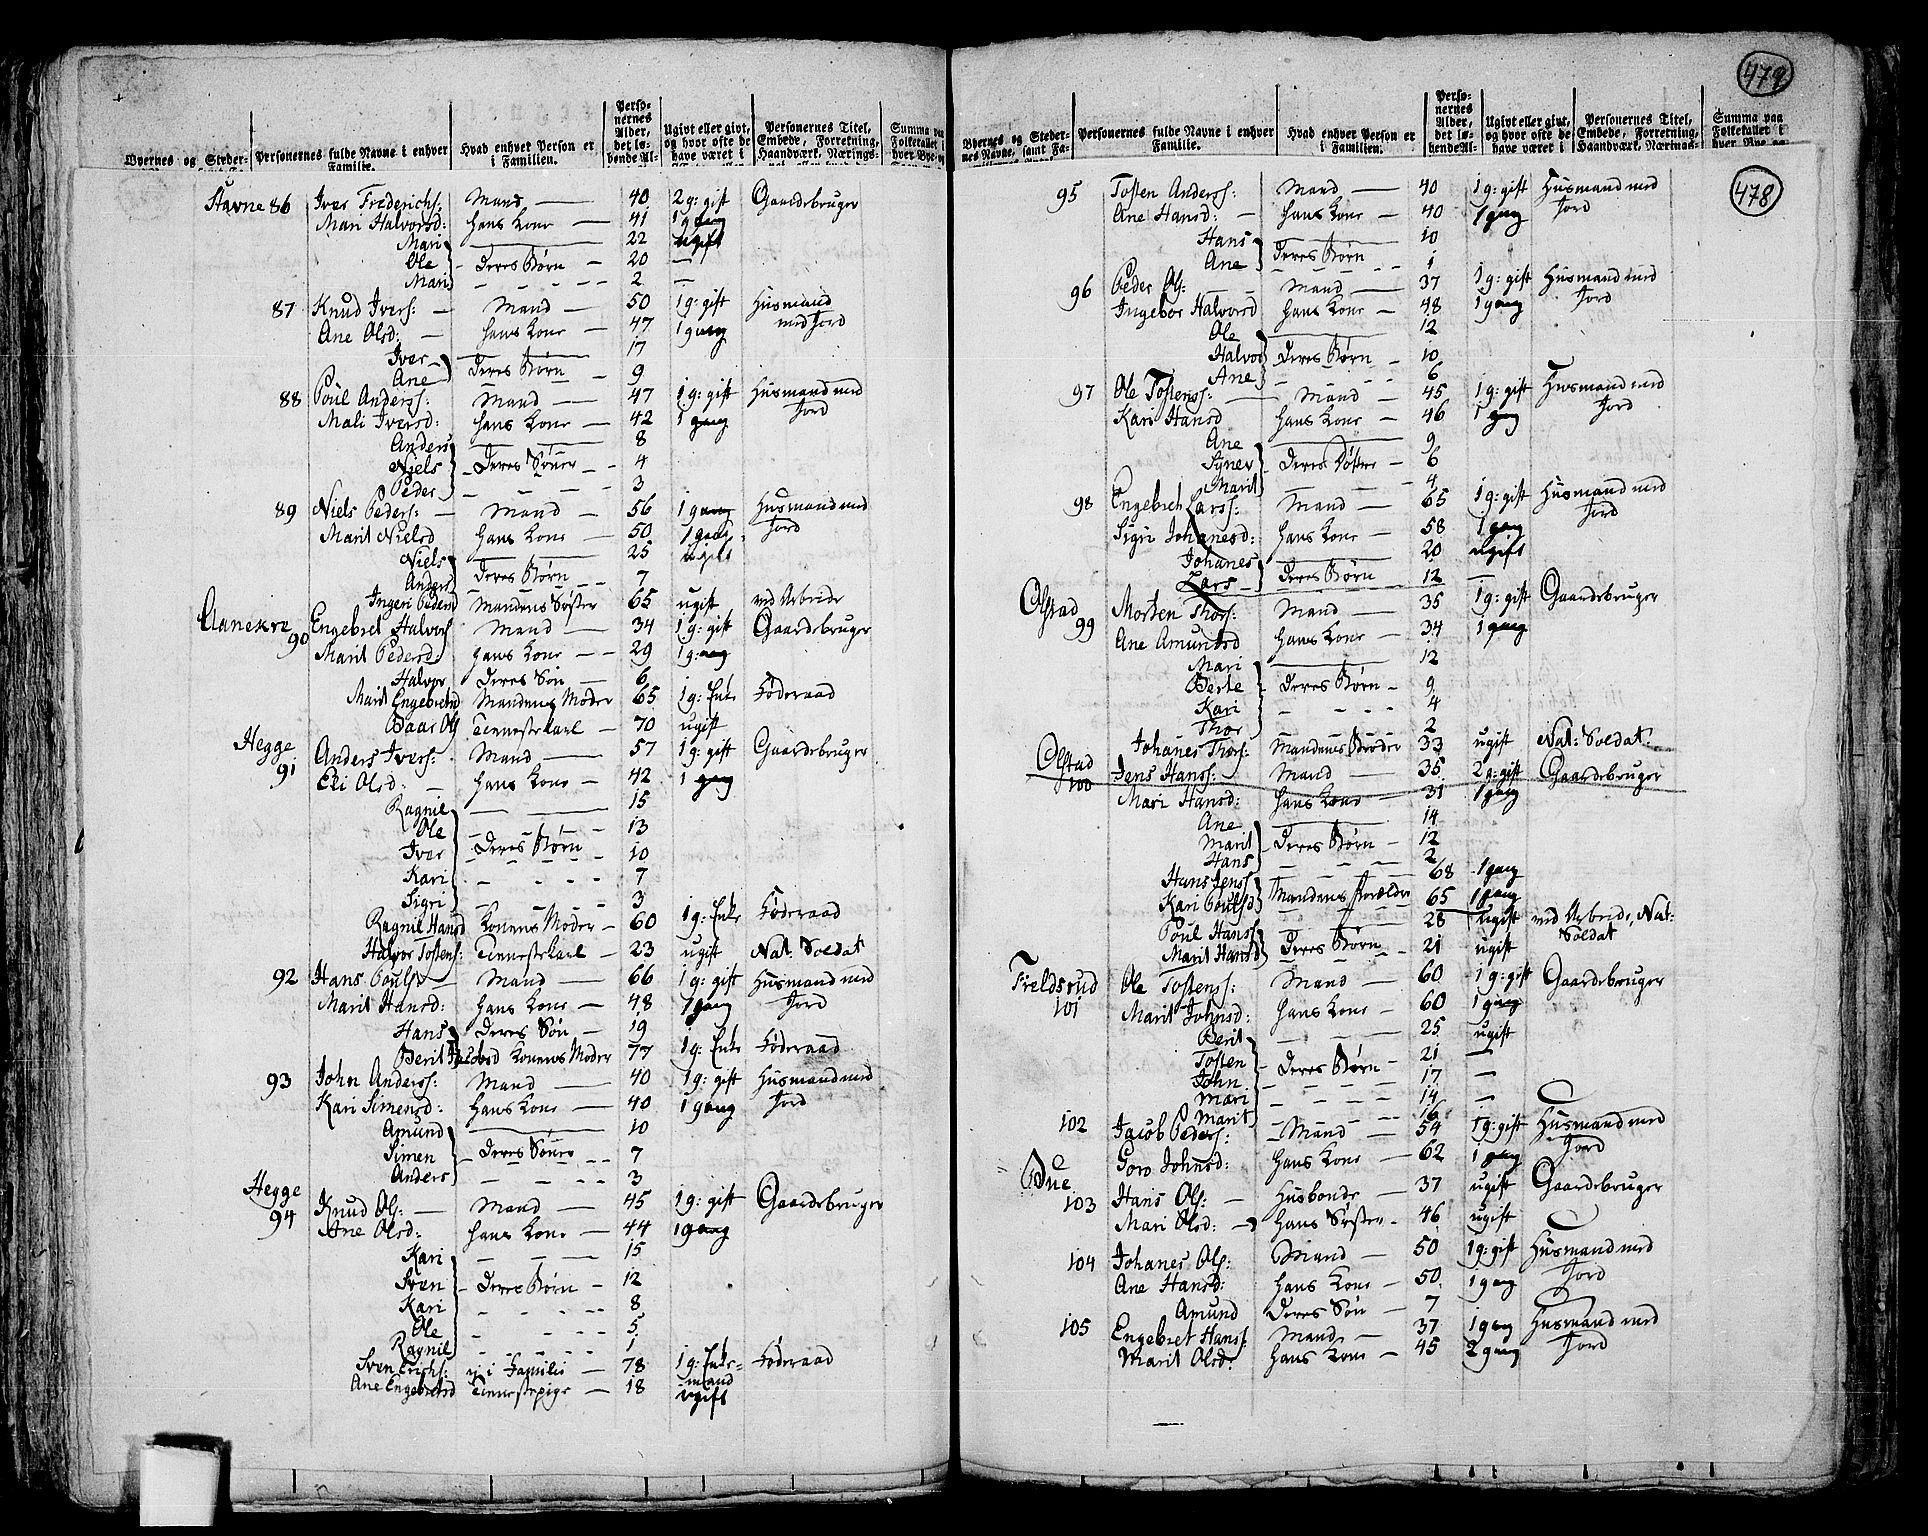 479
478
Byernes og Steder-
Personernes fulde Navne i enhver Familie.
Hvad enhver Person er i Familien.
Personernes Alder, det løbende Al-
Ugivt eller givt, og hvor ofte de have været i
Personernes Titel, Embede, Forretning, Haandværk, Nærings-
Summa paa Folketallet i hver Bye og
Stavne 86 Iver Frederichs: Mand 40 2 g: gift Gaardebruger
Mari Halvorsd: hans Kone 41 1 gang
Mari 22 ugift
Ole deres Børn 20 —
Mari 2 —
87 Knud Ivers: Mand 50 1 g: gift Huusmand
Ane Olsd: hans Kone 47 1 gang med Jord
Iver 17
Ane deres Børn 9
88 Poul Anders: Mand 47 1 g: gift Huusmand med
Mali Iversd: hans Kone 42 1 gang Jord
Anders 8
Niels deres Sønner 4
Peder 3
89 Niels Peders: Mand 56 1 gang Huusmand med
Marit Nielsd hans Kone 50 1 gang Jord
Niels 25 ugift
Anders deres Børn 7
Ingeri Pedersd Mandens Søster 65 ugift ved Arbeide
Aanekre 90 Engebret Halvors Mand 34 1 g: gift Gaardebruger
Marit Pedersd: hans Kone 29 1 gang
Halvor deres Søn 6
Marit Engebretsd Mandens Moder 65 1 g: Enke Føderaad
Baar Ols tienestekarl 70 ugift
Hegge 91 Anders Ivers: Mand 57 1 g: gift Gaardebruger
Eli Olsd: hans Kone 42 1 gang
Ragnil 15
Ole 13
Iver deres Børn 10
Kari 7
Sigri 3
Ragnil Hansd Konens Moder 60 1 g: Enke Føderaad
Halvor Tostens: tienestekarl 23 ugift Nat. Soldat
92 Hans Pouls Mand 66 1 g: gift Huusmand med
Marit Hansd: hans Kone 48 1 gang Jord
Hans deres Søn 19
Berit Jacobsd Konens Moder 77 1 g: Enke Føderaad
93 John Anders: Mand 40 1 g: gift Huusmand med
Kari Simensd: hans Kone 40 1 gang Jord
Amund 10
Simen deres Sønner 7
Anders 3
Hegge 94 Knud Ols: Mand 45 1 g: gift Gaardebruger
Ane Olsd: hans Kone 44 1 gang
Kari 15
Sven deres Børn 12
Kari 8
Ole 5
Ragnil 1
Sven Erichs: ej i Familie 78 1 g: Enke- Føderaad
mand
Ane Engebretsd tienestepige 18 ugift
Byernes og Steder-nes Navne, samt Fa-
Personernes fulde Navne i enhver Familie.
Hvad enhver Person er i Familien.
Personernes Alder, det løbende Al-
Ugivt eller givt, og hvor ofte de have været i
Personernes Titel, Embede, Forretning, Haandværk, Nærings-
Summa paa Folketallet i hver Bye og
95 Tosten Anders: Mand 40 1 g: gift Huusmand med
Ane Hansd: hans Kone 40 1 gang Jord
Hans 10
Ane deres Børn 1
96 Peder Ols: Mand 37 1 g: gift Huusmand med
Ingebor Halvorsd hans Kone 48 1 gang Jord
Ole 12
Halvor deres Børn 10
Ane 6
97 Ole Tostens: Mand 45 1 g: gift Huusmand med
Kari Hansd hans Kone 46 1 gang Jord
Ane 9
Synev deres Døttre 6
Marit 4
98 Engebret Lars: Mand 65 1 g: gift Huusmand med
Sigri Johanesd: hans Kone 58 1 gang Jord
Johanes 20 ugift
Lars deres Børn 12 —
Olstad 99 Morten Thors: Mand 35 1 g: gift Gaardebruger
Ane Amundsd hans Kone 34 1 gang
Mari 12
Berte deres Børn 9
Kari 4
Thor 2
Johanes Thors: Mandens Broder 33 ugift Nat: Soldat:
Olstad 100 Jens Hans: Mand 35 2 g: gift Gaardebruger
Mari Hansd: hans Kone 31 1 gang
Ane 14
Marit deres Børn 12
Hans 2
Hans Jens 68 1 gang
Kari Poulsd Mandens Forældre 65 1 gang
Poul Hans 28 ugift ved Arbeide, Nat:
Soldat
Marit Hansd deres Børn 21 ugift
Treldsrud 101 Ole Tostens: Mand 60 1 g: gift Gaardebruger
Marit Johnsd: hans Kone 60 1 gang
Berit 25 ugift
Tosten deres Børn 21 —
John 17 —
Mari 14 —
Marit 16
102 Jacob Peders: Mand 54 1 g: gift Huusmand med
Goro Johnsd: hans Kone 62 1 gang Jord
Bue 103 Hans Ols: Husbonde 37 ugift Gaardebruger
Mari Olsd: hans Søster 46 ugift
104 Johanes Ols: Mand 50 1 g: gift Huusmand med
Ane Hansd: hans Kone 50 1 gang Jord
Amund deres Søn 7
105 Engebret Hans: Mand 37 1 gang Huusmand med
Marit Olsd: hans Kone 45 2 gang Jord